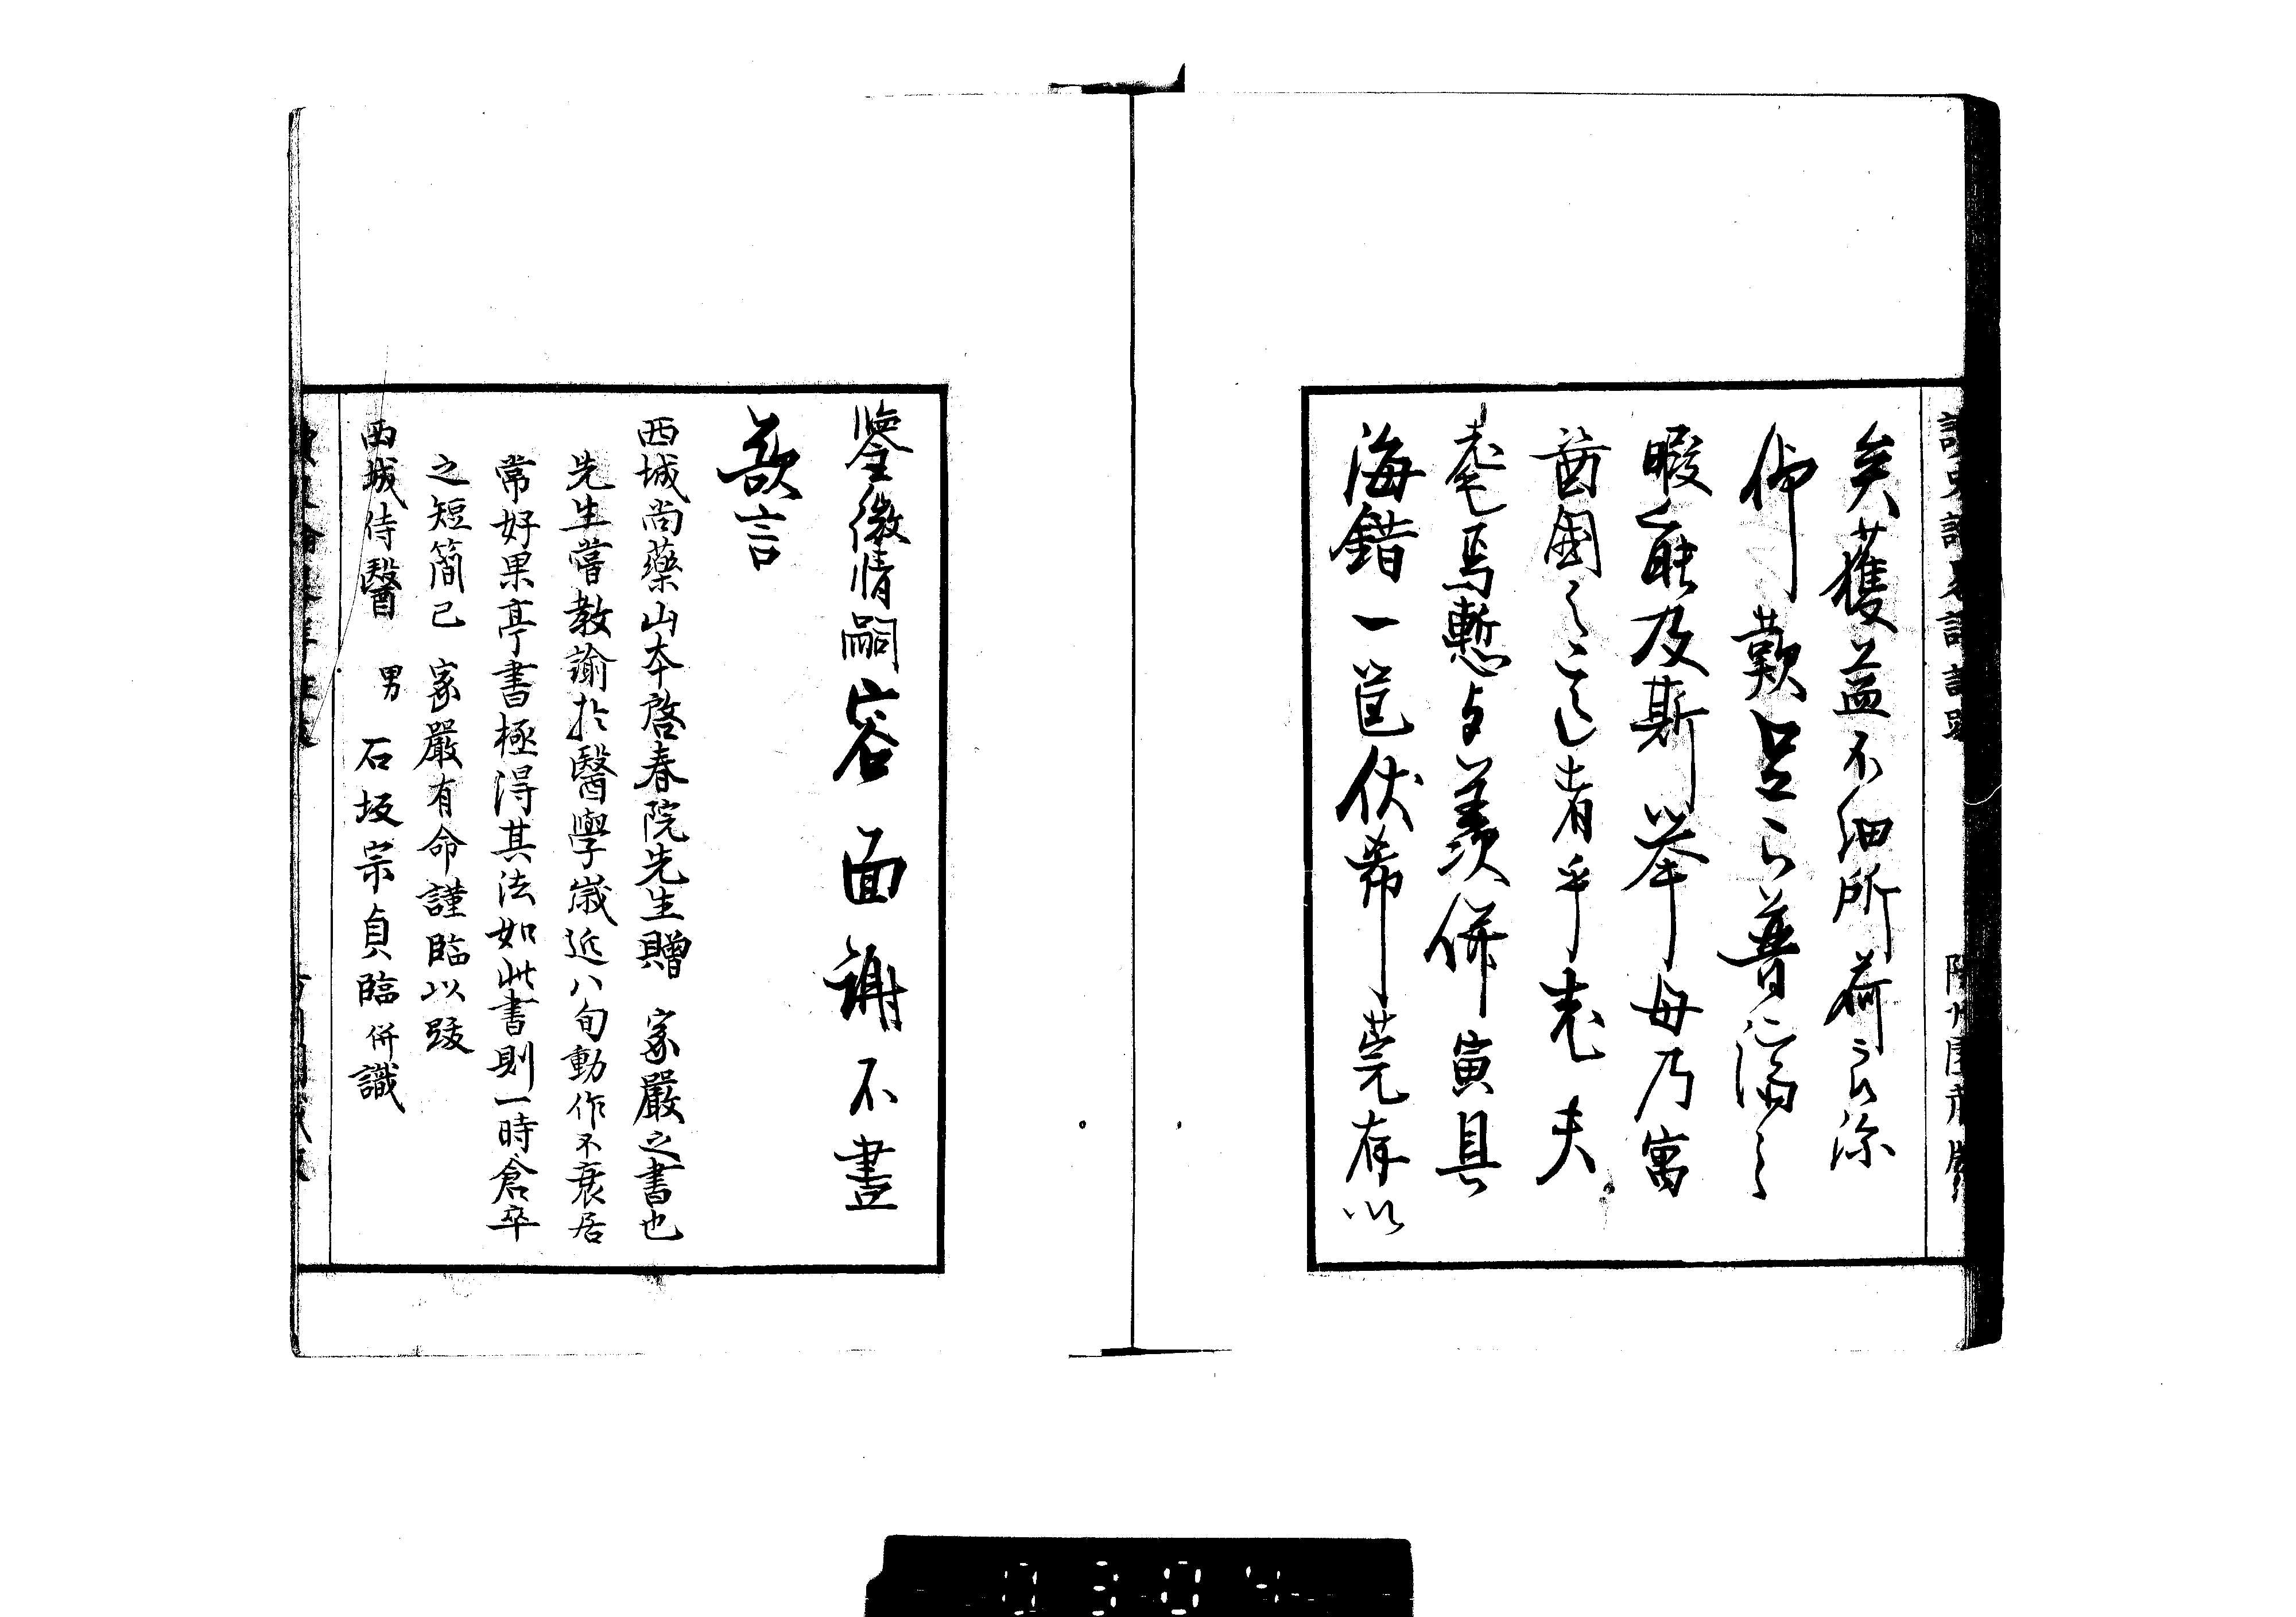 矣獲益不細所荷良深
仰歎足以普濟之
暇能及斯擧毋乃寓
醫國之意者乎老夫
耄焉慙與羨併寅具
海錯一筐伏希莞存以
鑒微情嗣容面謝不盡
欲言
西城尚藥山本啓春院先生贈 家嚴之書也
先生嘗教諭於醫學歲近八旬動作不衰居
常好果亭書極得其法如此書則一時倉卒
之短簡已 家嚴有命謹臨以跋
西城侍醫 男 石坂宗貞臨併識